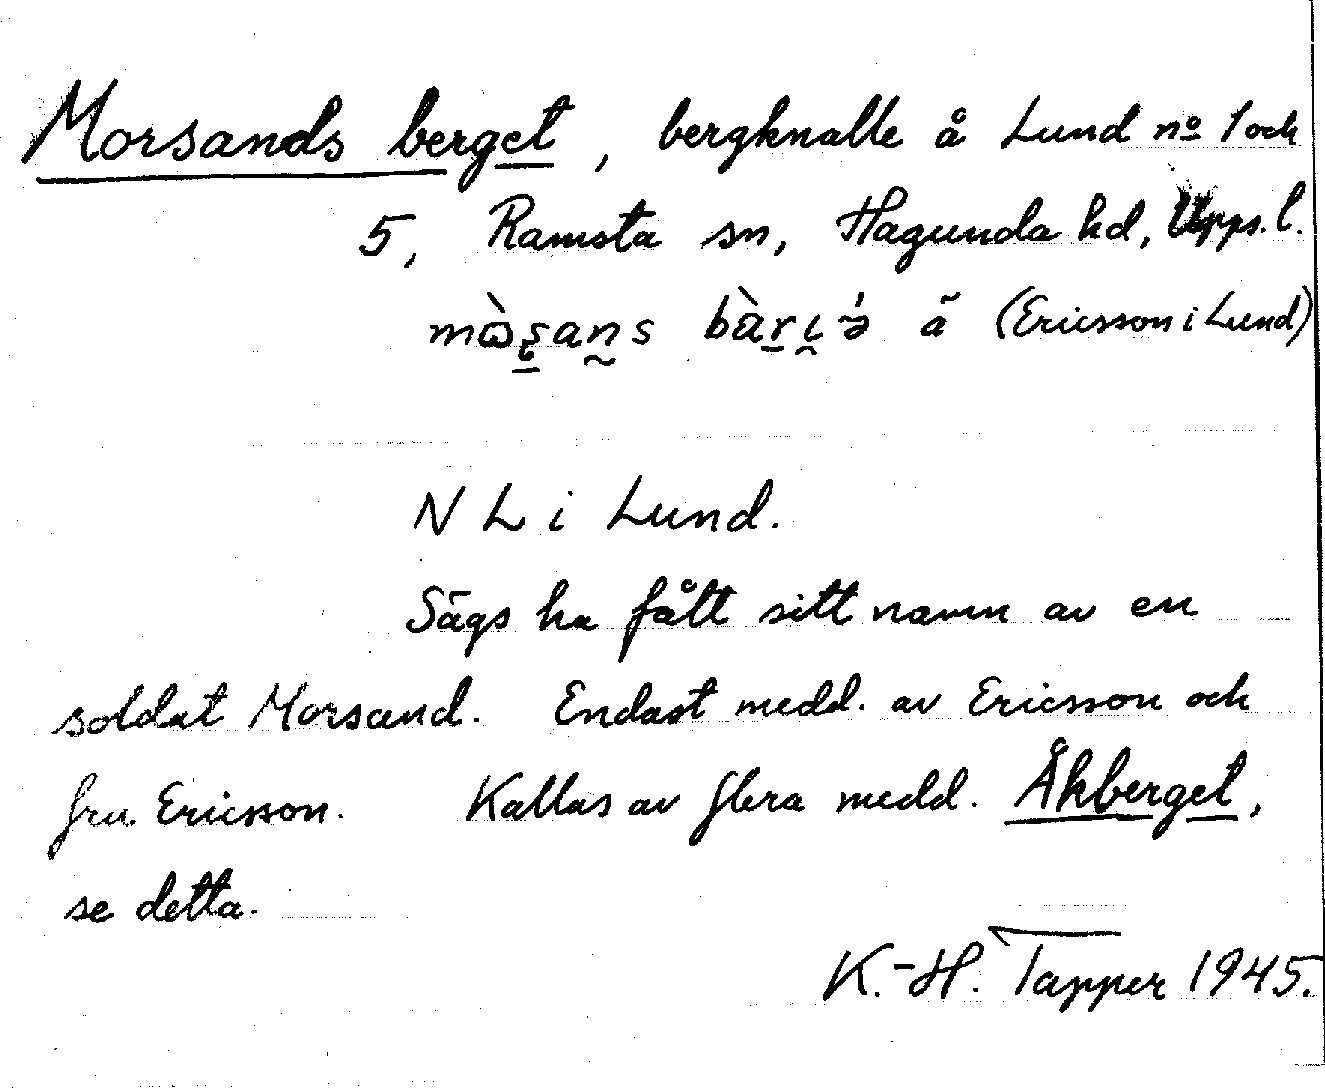 Morsands berget, bergknalle å Lund nº 1 och
5, Ramsta sn, Hagunda hd, Upps. l.
(Ericsson i Lund)
N L i Lund.
Sägs ha fått sitt namn av en
soldat Morsand. Endast medd. av Ericsson och
fru Ericsson. Kallas av flera medd. Åkberget,
se detta.
K.-H. Tapper 1945.